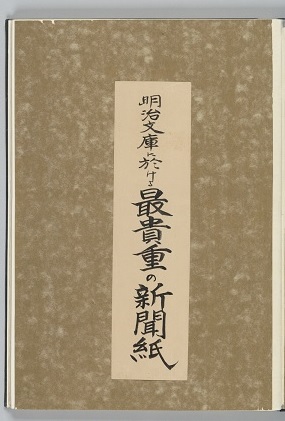 明治文庫に於ける最貴重の新聞紙